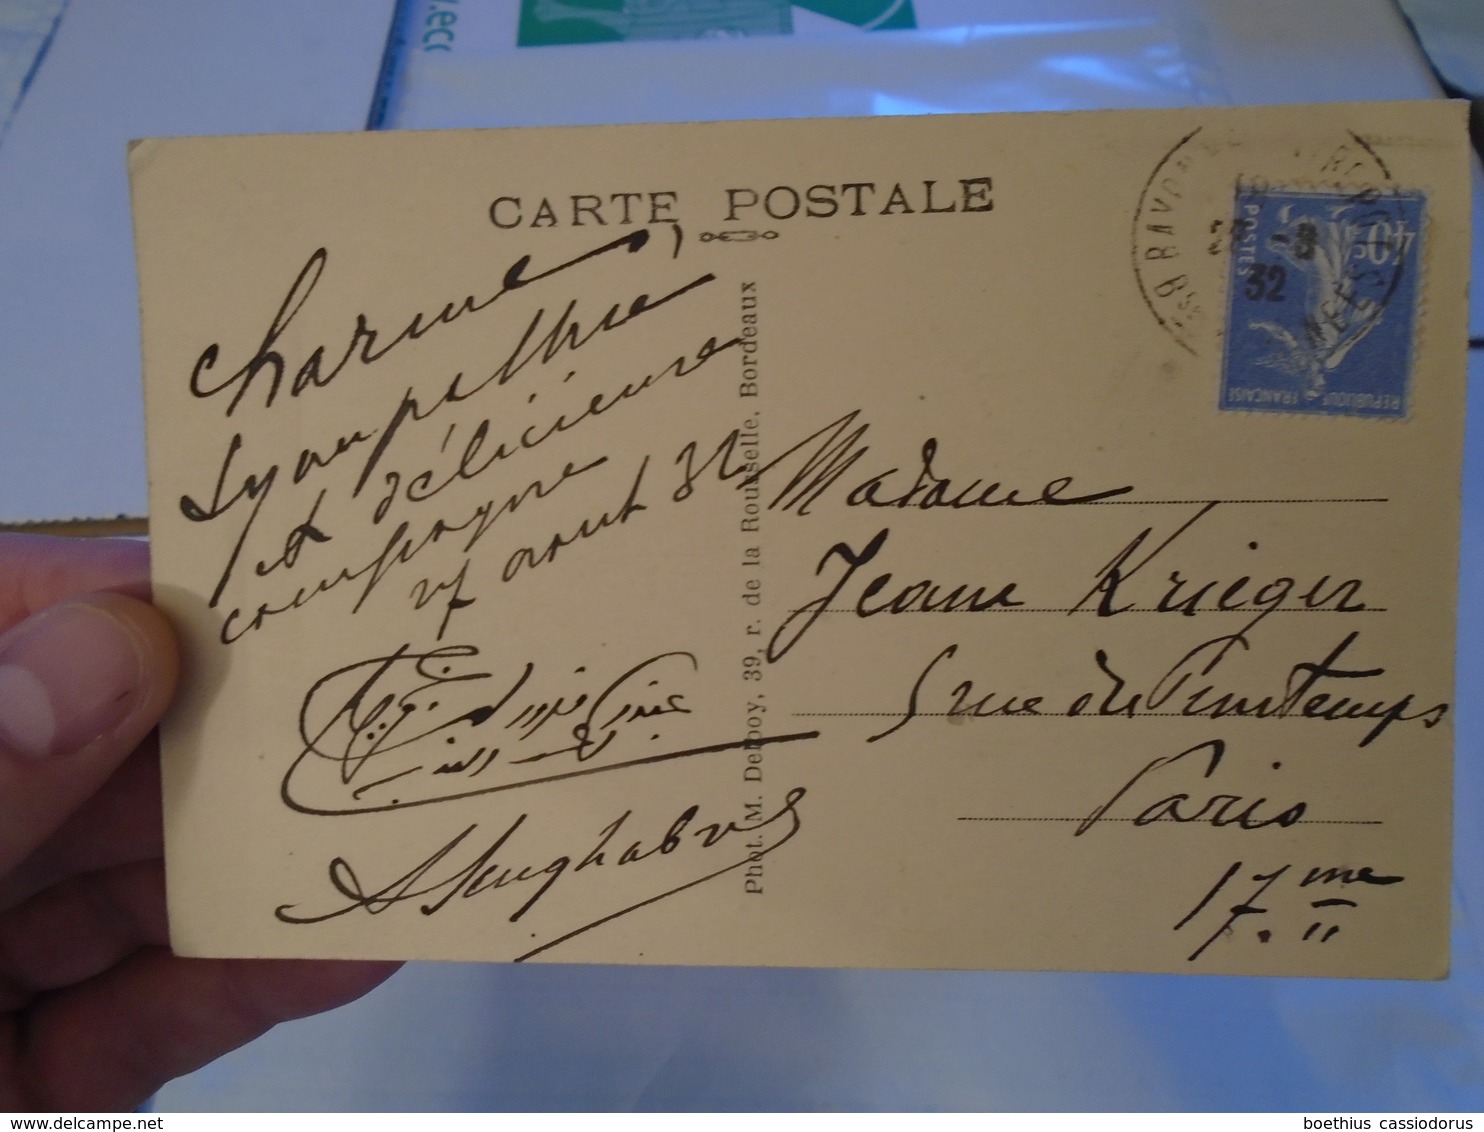 CARTE POSTALE
Charme,
Sympathie
et délicieuse
compagne
août 32
Phot. M. Delboy, 39, r. de la Rousselle, Bordeaux
Madame
Jeanne Krieger
5 rue du Printemps
Paris
17.me
40c
POSTES
REPUBLIQUE FRANÇAISE
32
BAYONNE
Bses PYRENEES
boethius cassiodorus
.eco